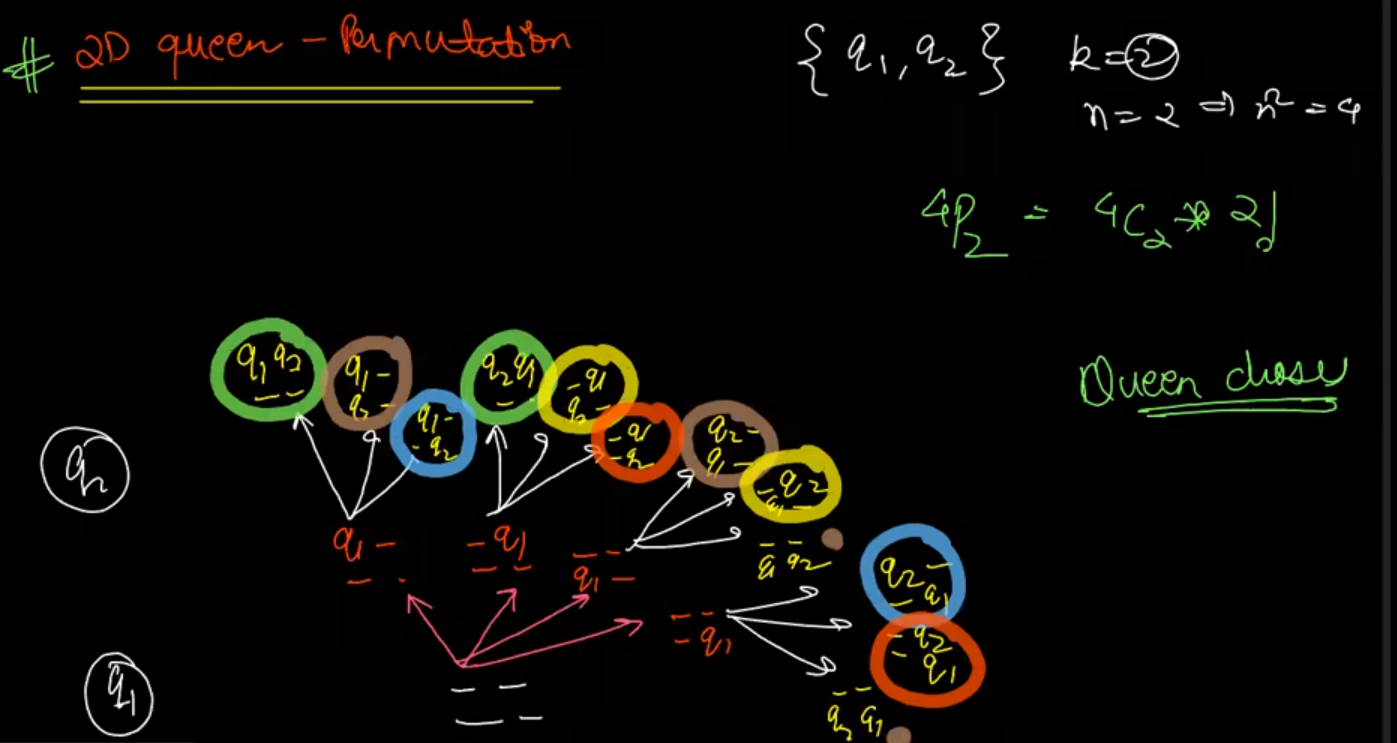 # 2D queen - Permutation
{ q1, q2 } k=2
n=2 ⇒ n² = 4
4P2 = 4C2 * 2!
Queen chose
q1 q2
_ _
q1 -
q2 -
q1 -
- q2
q2 q1
_ _
- q1
q2 -
- q1
- q2
q2 -
q1 -
- q2
q1 -
- -
q1 q2
q2 -
- q1
- q2
- q1
- -
q2 q1
q2
q1 -
- -
- q1
- -
- -
q1 -
- -
- q1
q1
- -
- -